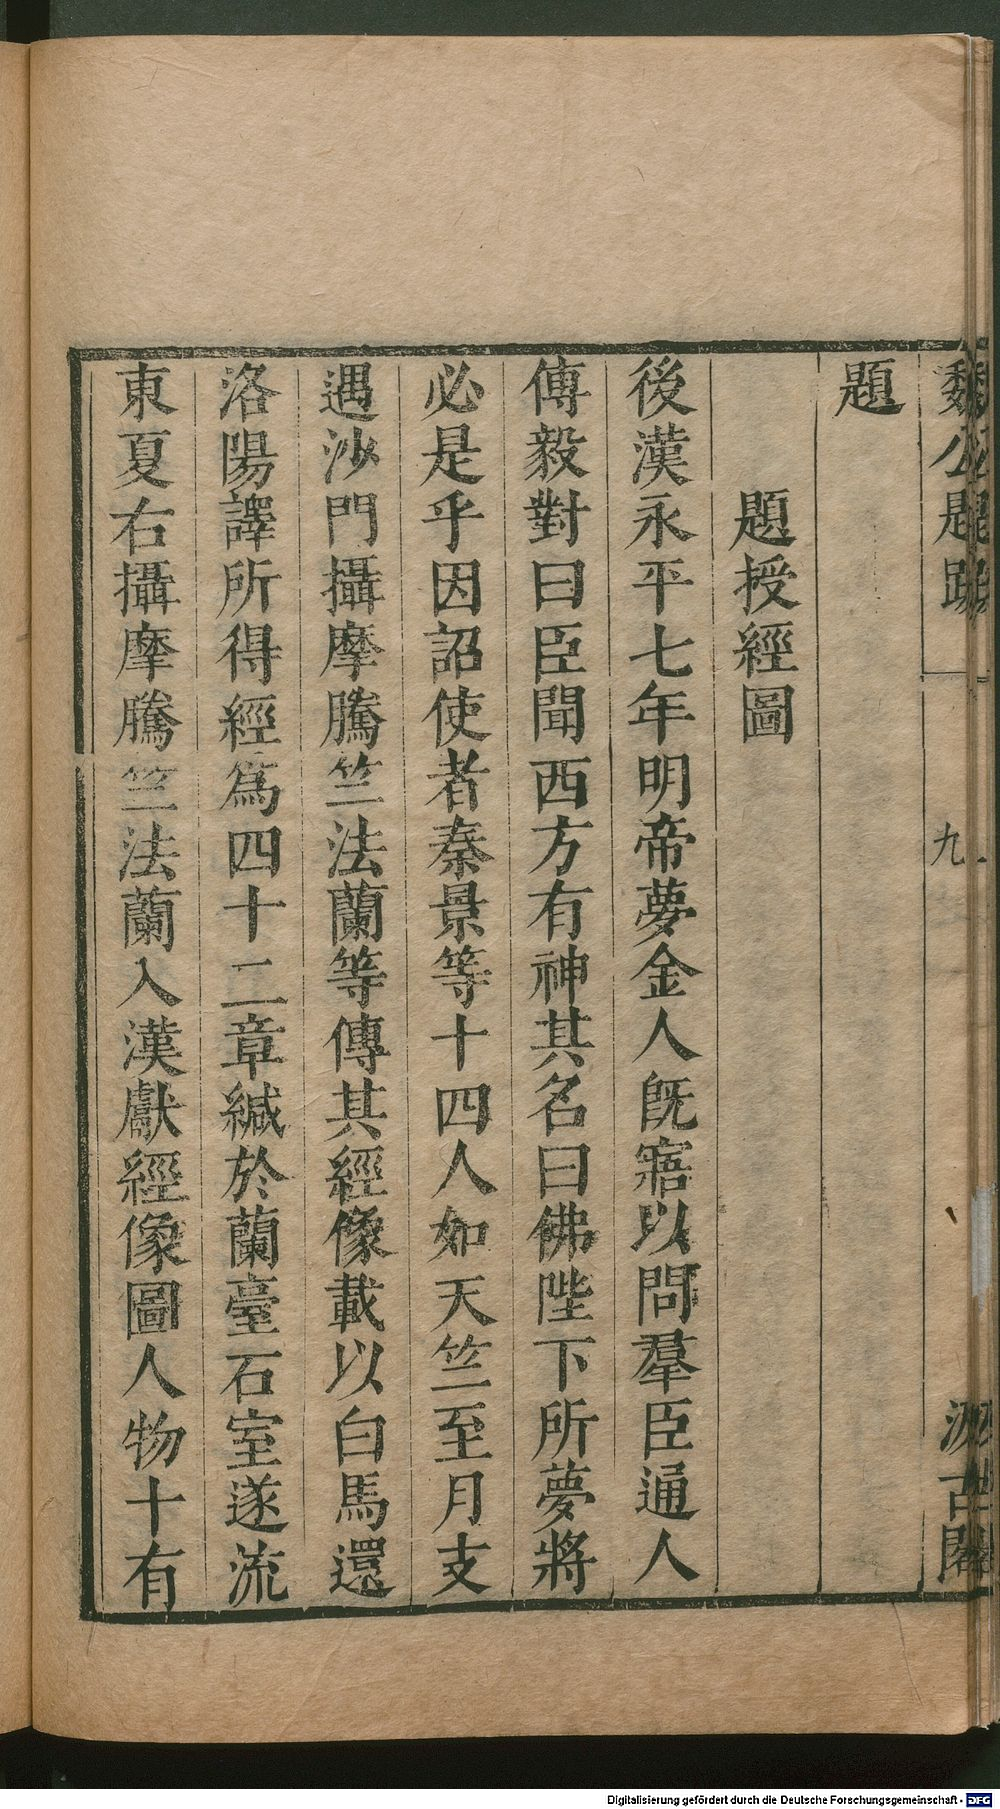 魏公題跋
九
汲古閣
題
題授經圖
後漢永平七年明帝夢金人旣寤以問羣臣通人
傅毅對曰臣聞西方有神其名曰佛陛下所夢將
必是乎因詔使者秦景等十四人如天竺至月支
遇沙門攝摩騰竺法蘭等傳其經像載以白馬還
洛陽譯所得經爲四十二章緘於蘭臺石室遂流
東夏右攝摩騰竺法蘭入漢獻經像圖人物十有
Digitalisierung gefördert durch die Deutsche Forschungsgemeinschaft - DFG